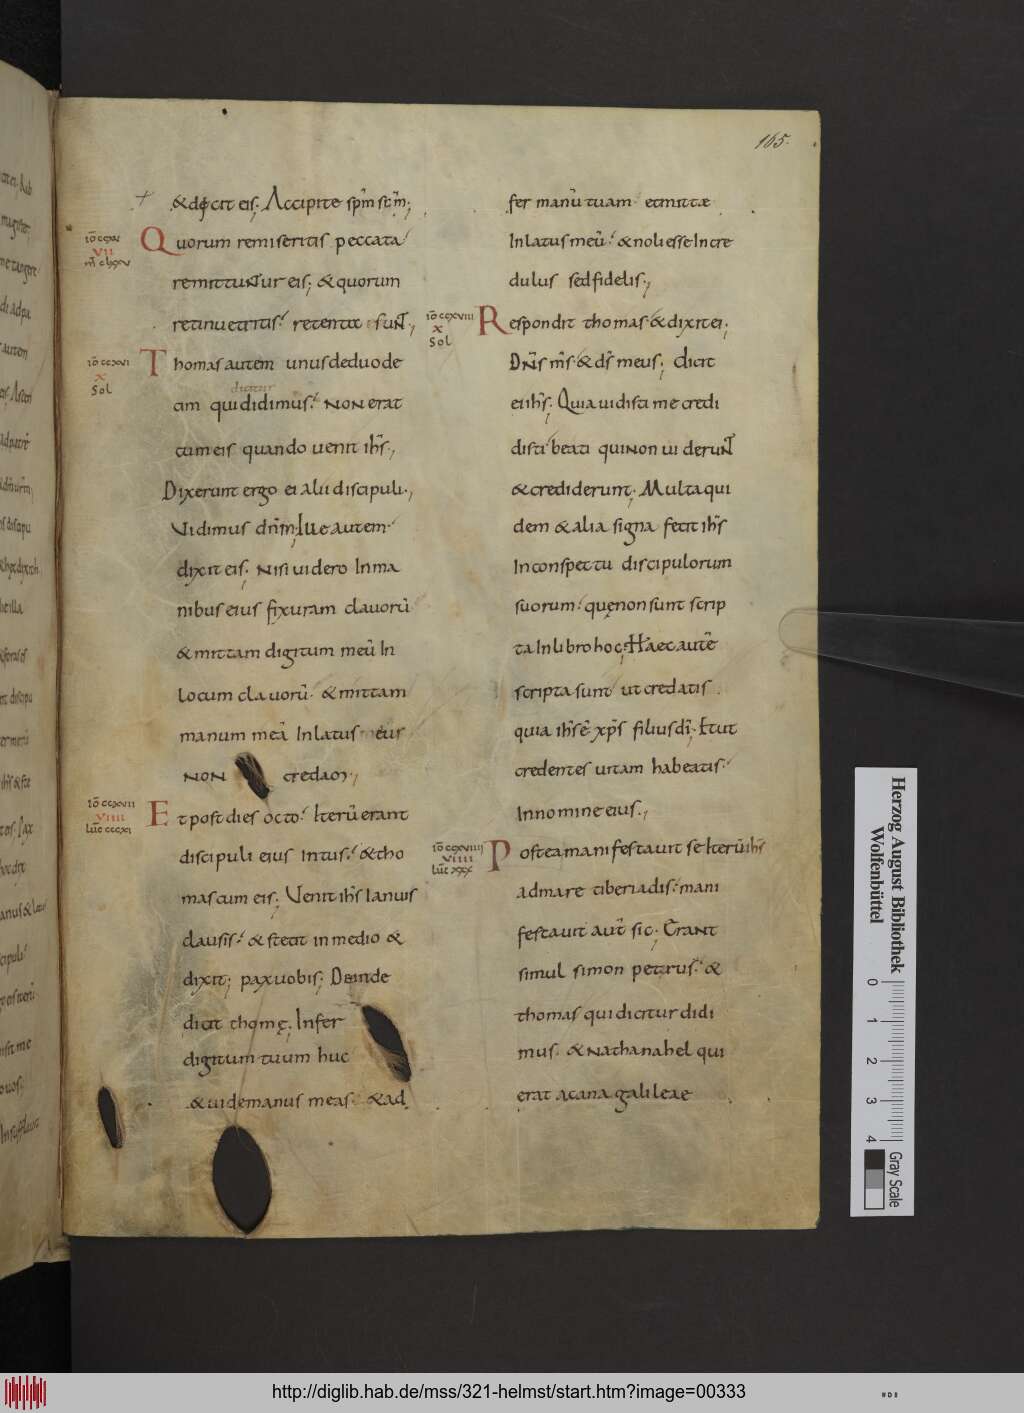 165.
&dixit eis; Accipite spm scm;
io ccxv
Quorum remiseritis peccata
VII
remittuntur eis; & quorum
retinueritis retenta sunt;
io ccxvi
X
Sol
Thomas autem unus deduode
dicitur
cim qui didimus: non erat
cum eis quando uenit ihs;
Dixerunt ergo ei alii discipuli;
Vidimus dnm; Ille autem
dixit eis; nisi uidero In ma
nibus eius fixuram clauorū
& mittam digitum meū In
locum clauorū & mittam
manum meā Inlatus eius
non credam;
io ccxvii
VIIII
luc cccxl
Et post dies octo Iterū erant
discipuli eius Intus: & tho
mas cum eis; Venit ihs Ianuis
clausis: & stetit in medio &
dixit; pax uobis; Deinde
dicit thomę; Infer
digitum tuum huc
& uide manus meas & ad
fer manū tuam et mitte
In latus meū & noli esse Incre
dulus sed fidelis;
io ccxviii
X
Sol
Respondit thomas & dixit ei;
Dns ms & ds meus; dicit
ei ihs; Quia uidisti me credi
disti beati qui non uiderunt
& crediderunt; Multa qui
dem & alia signa fecit ihs
In conspectu discipulorum
suorum quę non sunt scrip
ta In libro hoc; Haec autē
scripta sunt ut credatis
quia ihs ē xps filius di; & ut
credentes uitam habeatis
In nomine eius;
io ccxviiii
VIIII
luc xxx
Postea manifestauit se Iterū ihs
ad mare tiberiadis: mani
festauit aut sic; Erant
simul simon petrus: &
thomas qui dicitur didi
mus & Nathanahel qui
erat a cana galileae
Herzog August Bibliothek
Wolfenbüttel
0 1 2 3 4
Gray Scale
http://diglib.hab.de/mss/321-helmst/start.htm?image=00333